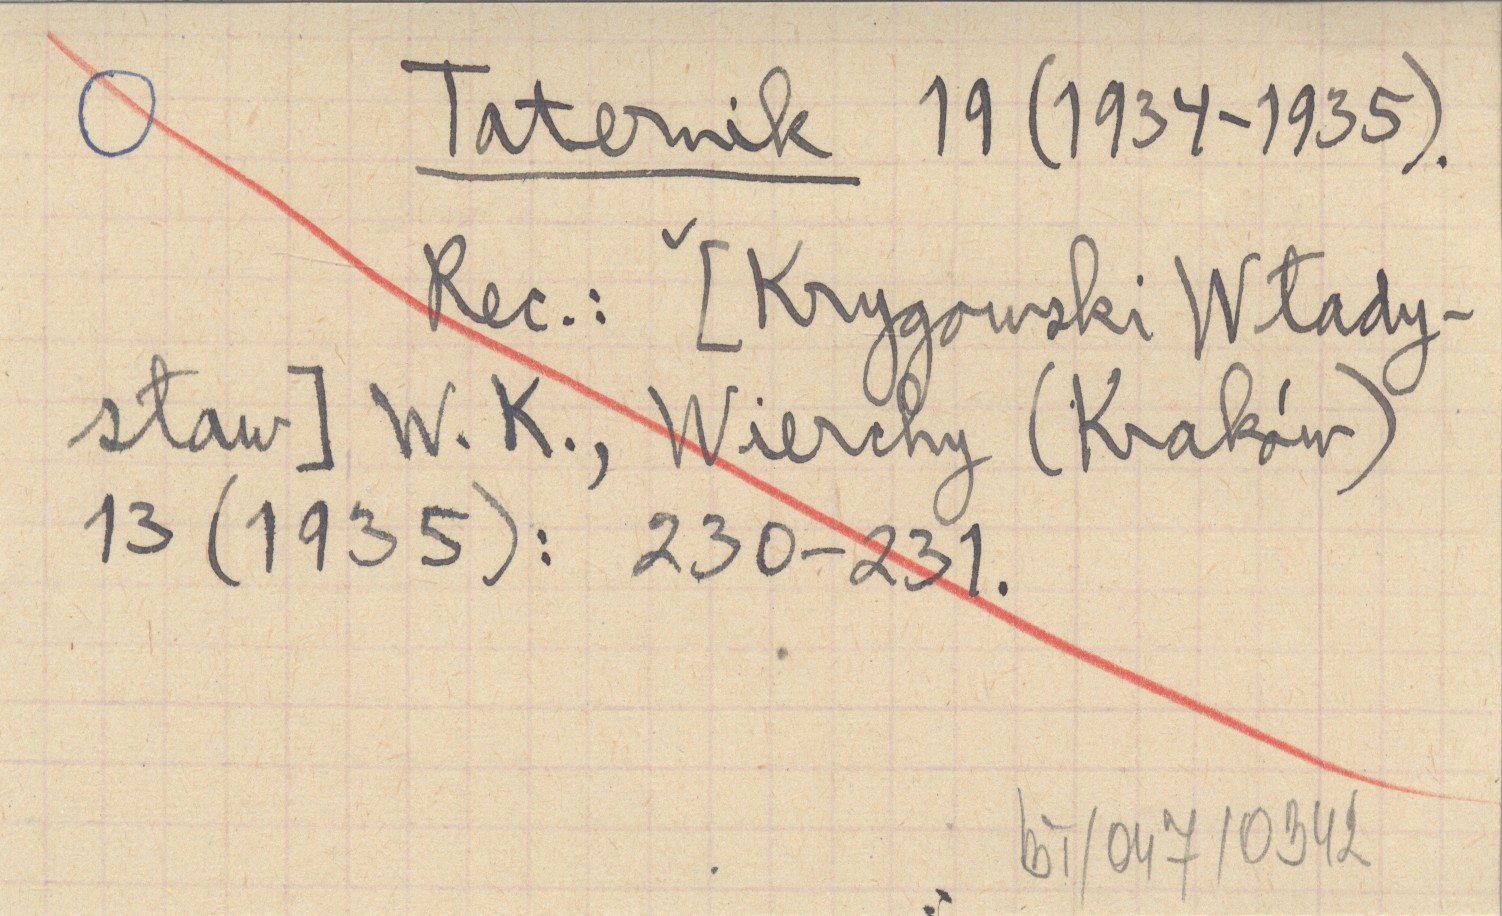 Taternik 19 (1934-1935).
Rec.: ˇ[Krygowski Włady-
sław] W. K., Wierchy (Kraków)
13 (1935): 230-231.
bT/047/0342